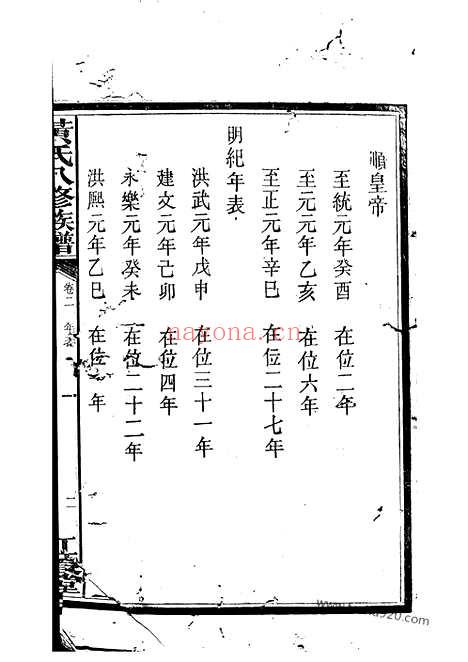 順皇帝
至統元年癸酉 在位二年
至元元年乙亥 在位六年
至正元年辛巳 在位二十七年
明紀年表
洪武元年戊申 在位三十一年
建文元年己卯 在位四年
永樂元年癸未 在位二十二年
洪熙元年乙巳 在位 年
黃氏八修族譜
卷二 年表
nayona.cn